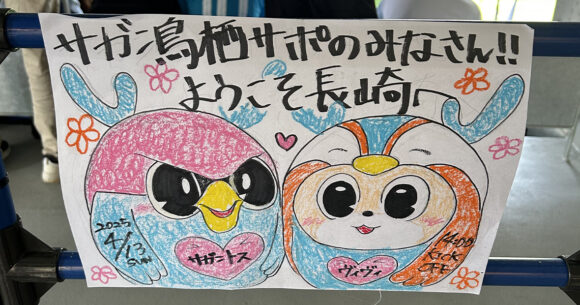 サガン鳥栖サポのみなさん!!
ようこそ長崎へ
2025
4/13
sun
サガントス
ヴィヴィ
14:00
Kick
OFF